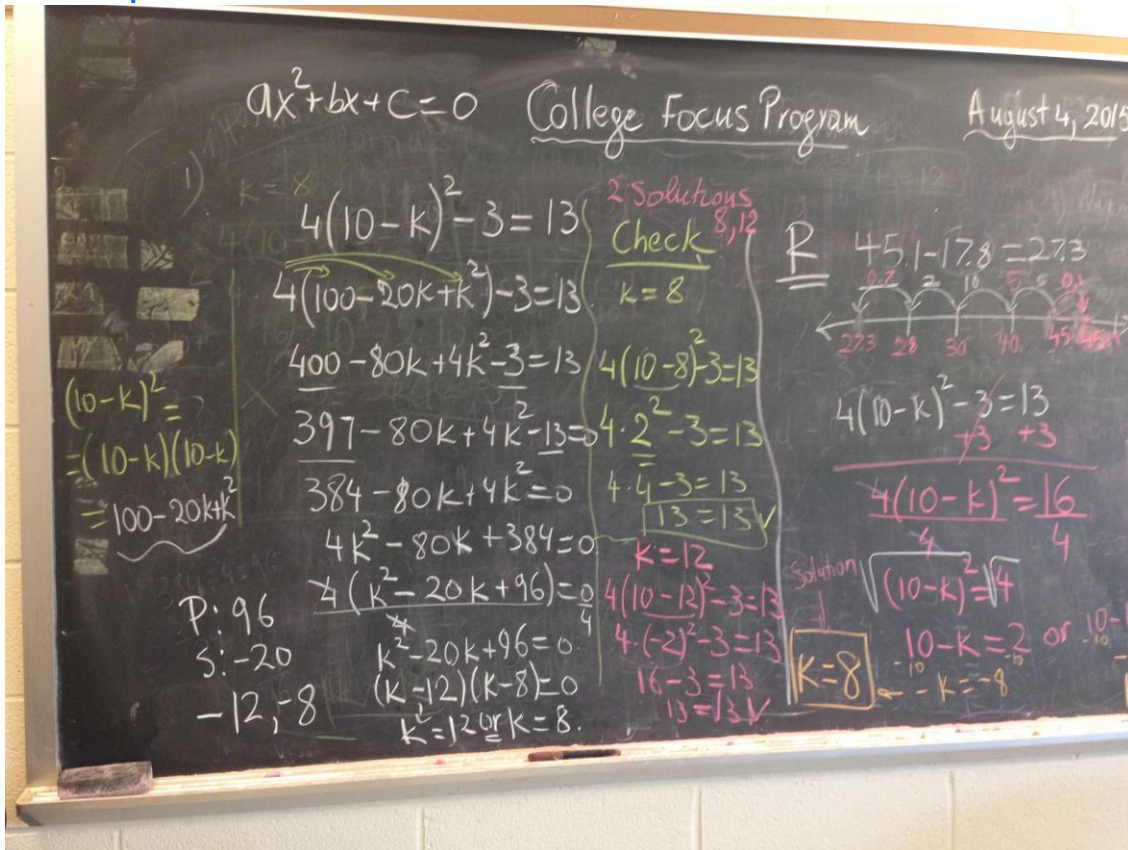 ax²+bx+c=0
College Focus Program
August 4, 2015
1)
k=8
4(10-k)²-3=13
4(100-20k+k²)-3=13
400-80k+4k²-3=13
397-80k+4k²-13=0
384-80k+4k²=0
4k²-80k+384=0
4(k²-20k+96)=0
4 4
k²-20k+96=0
(k-12)(k-8)=0
k²=12 or k=8.
(10-k)²=
=(10-k)(10-k)
=100-20k+k²
P: 96
S: -20
-12,-8
2 Solutions
8,12
Check
k=8
4(10-8)²-3=13
4·2²-3=13
4·4-3=13
13=13✓
k=12
4(10-12)²-3=13
4·(-2)²-3=13
16-3=13
13=13✓
R
45.1-17.8=27.3
2 10 5
27.3 28 30 40 45
4(10-k)²-3=13
+3 +3
4(10-k)²=16
4 4
Solution
√(10-k)²=√4
10-k=2 or 10-
-10 -10 -10
k=8
-k=-8